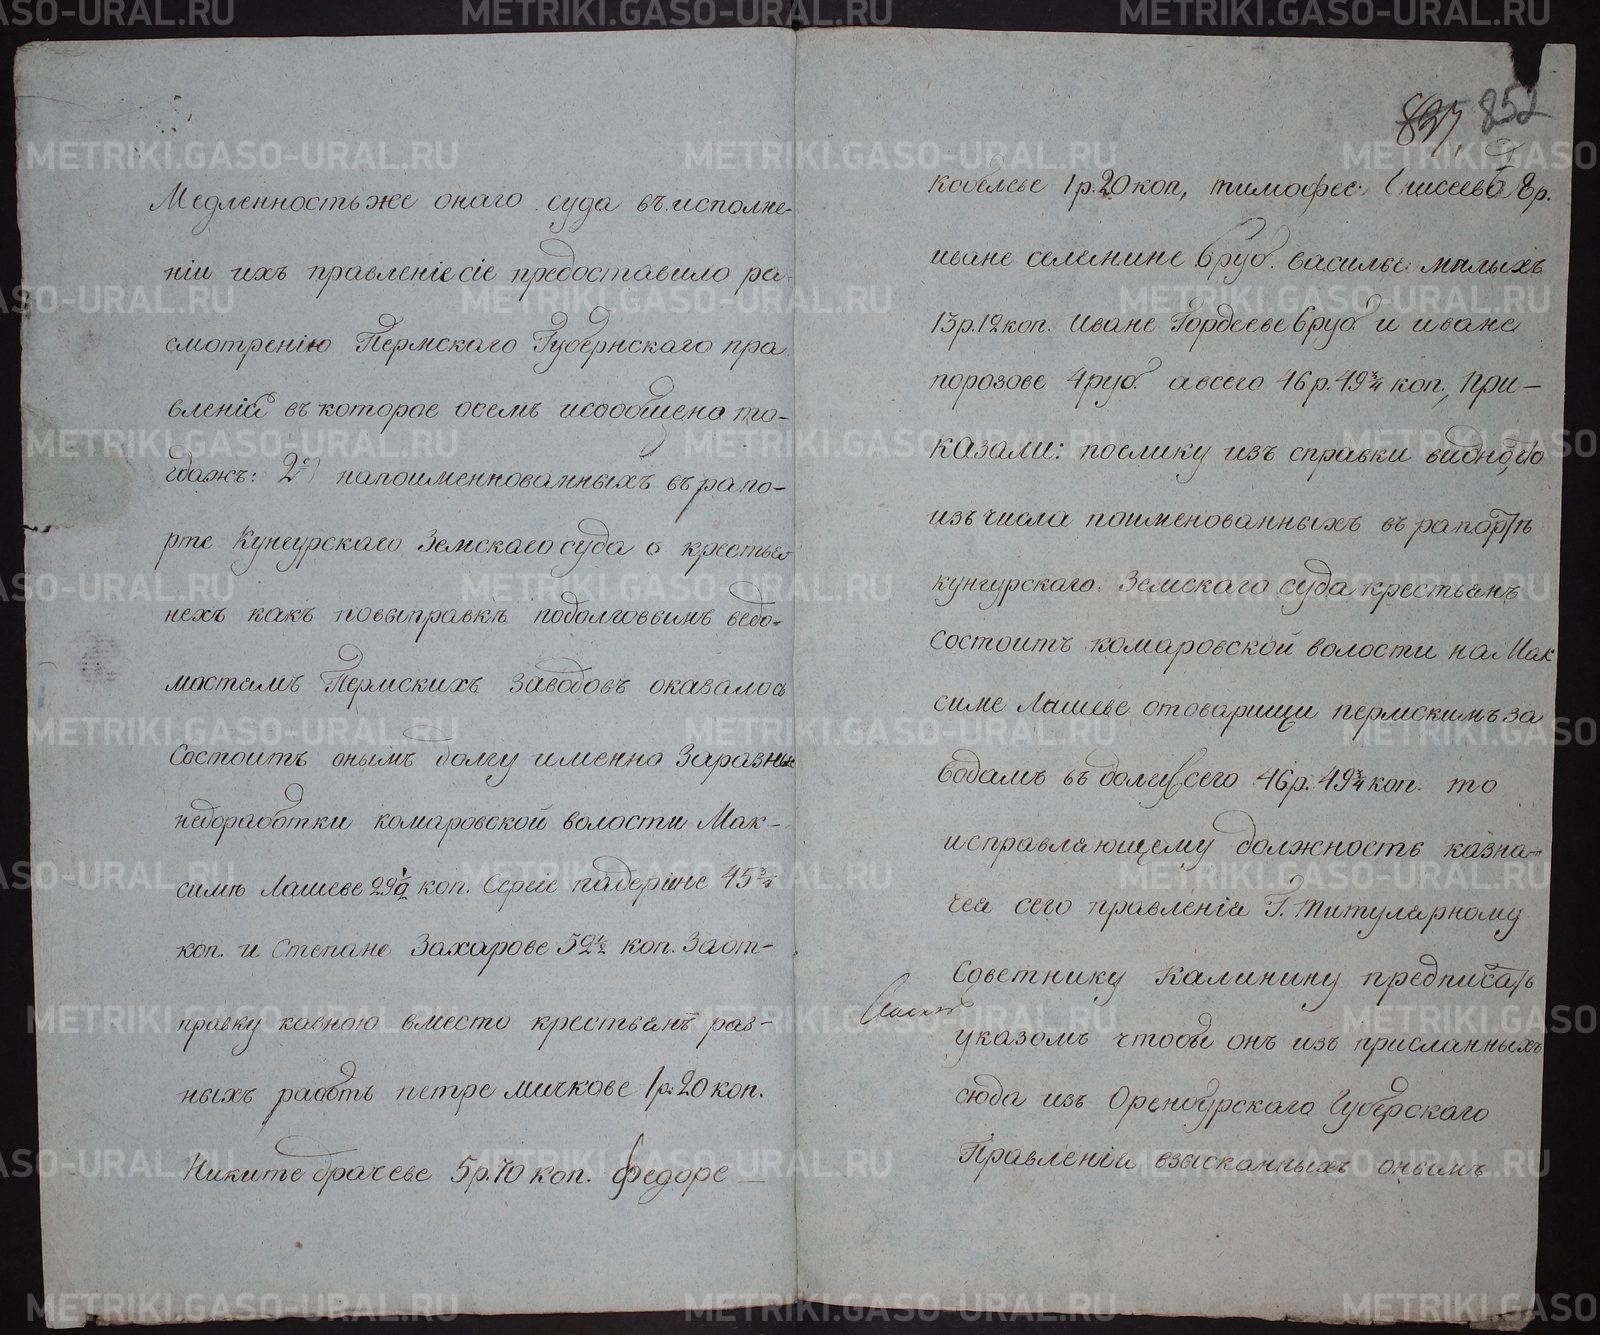 Медленность же онаго суда въ исполне-
ніи ихъ правленіе сіе предоставило ра-
смотренію Пермскаго Губернскаго пра
вленія въ которое осемъ исообщено то-
гдажъ: 2е) напоименнованныхъ въ рапо-
рте Кунгурскаго Земскаго суда о крестья
нехъ какъ повыправкѣ подолговымъ ведо-
мостямъ Пермскихъ заводовъ оказалось
Состоитъ онымъ долгу именно Заразныя
недоработки комаровской волости Мак-
симѣ Лашеве 29½ коп. Сергіе падерине 45¾
коп. и Степане Захарове 52½ коп. Заот-
правку казною вместо крестьянъ раз-
ныхъ работъ петре мичкове 1р. 20 коп.
Никите брачеве 5р. 70 коп. Федоре
837, 852
Кобелеве 1р. 20 коп, тимофее Елисееве 8р.
иване селянине 6 руб. василье малыхъ
13р. 12 коп. Иване Гордееве 6 руб. и иване
порозове 4 руб. авсего 46р. 49¾ коп., При-
казали: поелику изъ справки видно, что
изъ числа поименованныхъ въ рапортѣ
кунгурскаго Земскаго суда крестьянъ
Состоитъ комаровской волости на Мак
симе Лашеве стоварищи пермскимъ за
водамъ въ долгу всего 46р. 49¾ коп. то
исправляющему должность казна-
чея сего правленія Г. Титулярному
Советнику Калинину предписать
указомъ чтобы онъ изъ присланныхъ
сюда изъ Оренбурскаго Губерскаго
Правленія взысканныхъ онымъ
METRIKI.GASO-URAL.RU